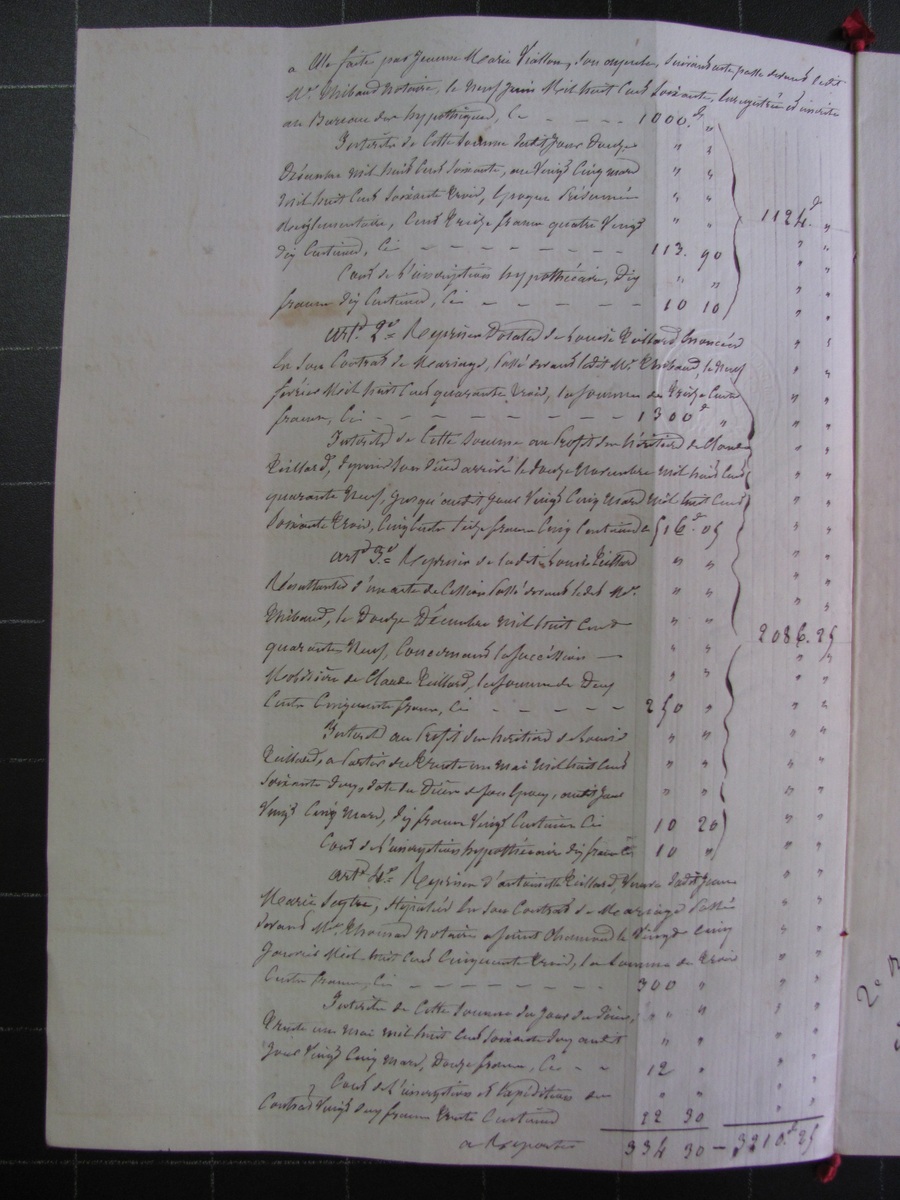 a elle faite par Jeanne Marie Viallon, son ayeule, suivant acte passé devant ledit
Me. Thibaud Notaire, le neuf Juin Mil huit Cent Soixante, Enregistrée et inscrite
au Bureau des hypothèques, Ci - - - - 1000.f "
Interets de Cette Somme dudit Jour Douze
Décembre mil huit Cent Soixante, au Vingt Cinq mars
mil huit Cent Soixante Trois, Epoque Présumée
du règlement, Cent Treize francs quatre Vingt
Dix Centimes, Ci - - - - 113. 90
1124.f "
Cout de l'inscription hypothécaire, Dix
francs Dix Centimes, Ci - - - - 10 10
art. 2e = Reprises Dotales de Louise Teillard, Enoncées
En Son Contrat de Mariage, Passé devant ledit Me. Thibaud, le neuf
février Mil huit Cent quarante Trois, la somme de Treize Cents
francs, Ci - - - - 1300f "
Interets de Cette Somme au Profit des héritiers de Claude
Teillard, depuis Son Décès arrivé le douze Novembre mil huit Cent
quarante Neuf, Jusqu'audit Jour Vingt Cinq Mars mil huit Cent
Soixante Trois, Cinq Cents Seize francs Cinq Centimes 516f. 05
art. 3e = Reprises de ladite Louise Teillard
Résultantes d'un acte de Cession Passé devant ledit Me.
Thibaud, le Douze Décembre mil huit Cent
2086. 25
quarante Neuf, Concernant la Succession
Mobilière de Claude Teillard, la somme de Deux
Cents Cinquante francs, Ci - - - - 250 "
Interets au Profit des héritiers de Louise
Teillard, a Partir du Trente un Mai Mil huit Cent
Soixante Deux, date du Décès de son Epoux, audit Jour
Vingt Cinq Mars, dix francs Vingt Centimes Ci 10 20
Cout de l'inscription hypothécaire dix francs Ci 10 "
art. 4e = Reprises d'antoinette Teillard, Veuve dudit Jean
Marie, Stipulées En Son Contrat de Mariage Passé
devant Me. Thomas Notaire a Saint Chamond le Vingt Cinq
Janvier Mil huit Cent Cinquante Trois, la Somme de Trois
Cents francs, Ci - - - - 300 "
Interets de Cette Somme du Jour du Décès,
Trente un Mai mil huit Cent Soixante Deux audit
Jour Vingt Cinq Mars, Douze francs, Ci - - 12 "
Cout de l'inscription et Expédition du
Contrat Vingt Deux francs Trente Centimes 22 30
a Reporter 334 30 - 3210.f 25